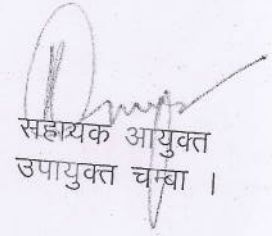 सहायक आयुक्त
उपायुक्त चम्बा ।